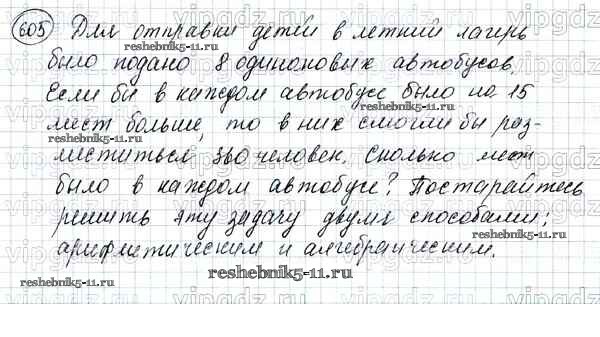 605 Для отправки детей в летний лагерь
было подано 8 одинаковых автобусов.
Если бы в каждом автобусе было на 15
мест больше, то в них смогли бы раз-
меститься 360 человек. Сколько мест
было в каждом автобусе? Постарайтесь
решить эту задачу двумя способами:
арифметическим и алгебраическим.
reshebnik5-11.ru
reshebnik5-11.ru
reshebnik5-11.ru
reshebnik5-11.ru